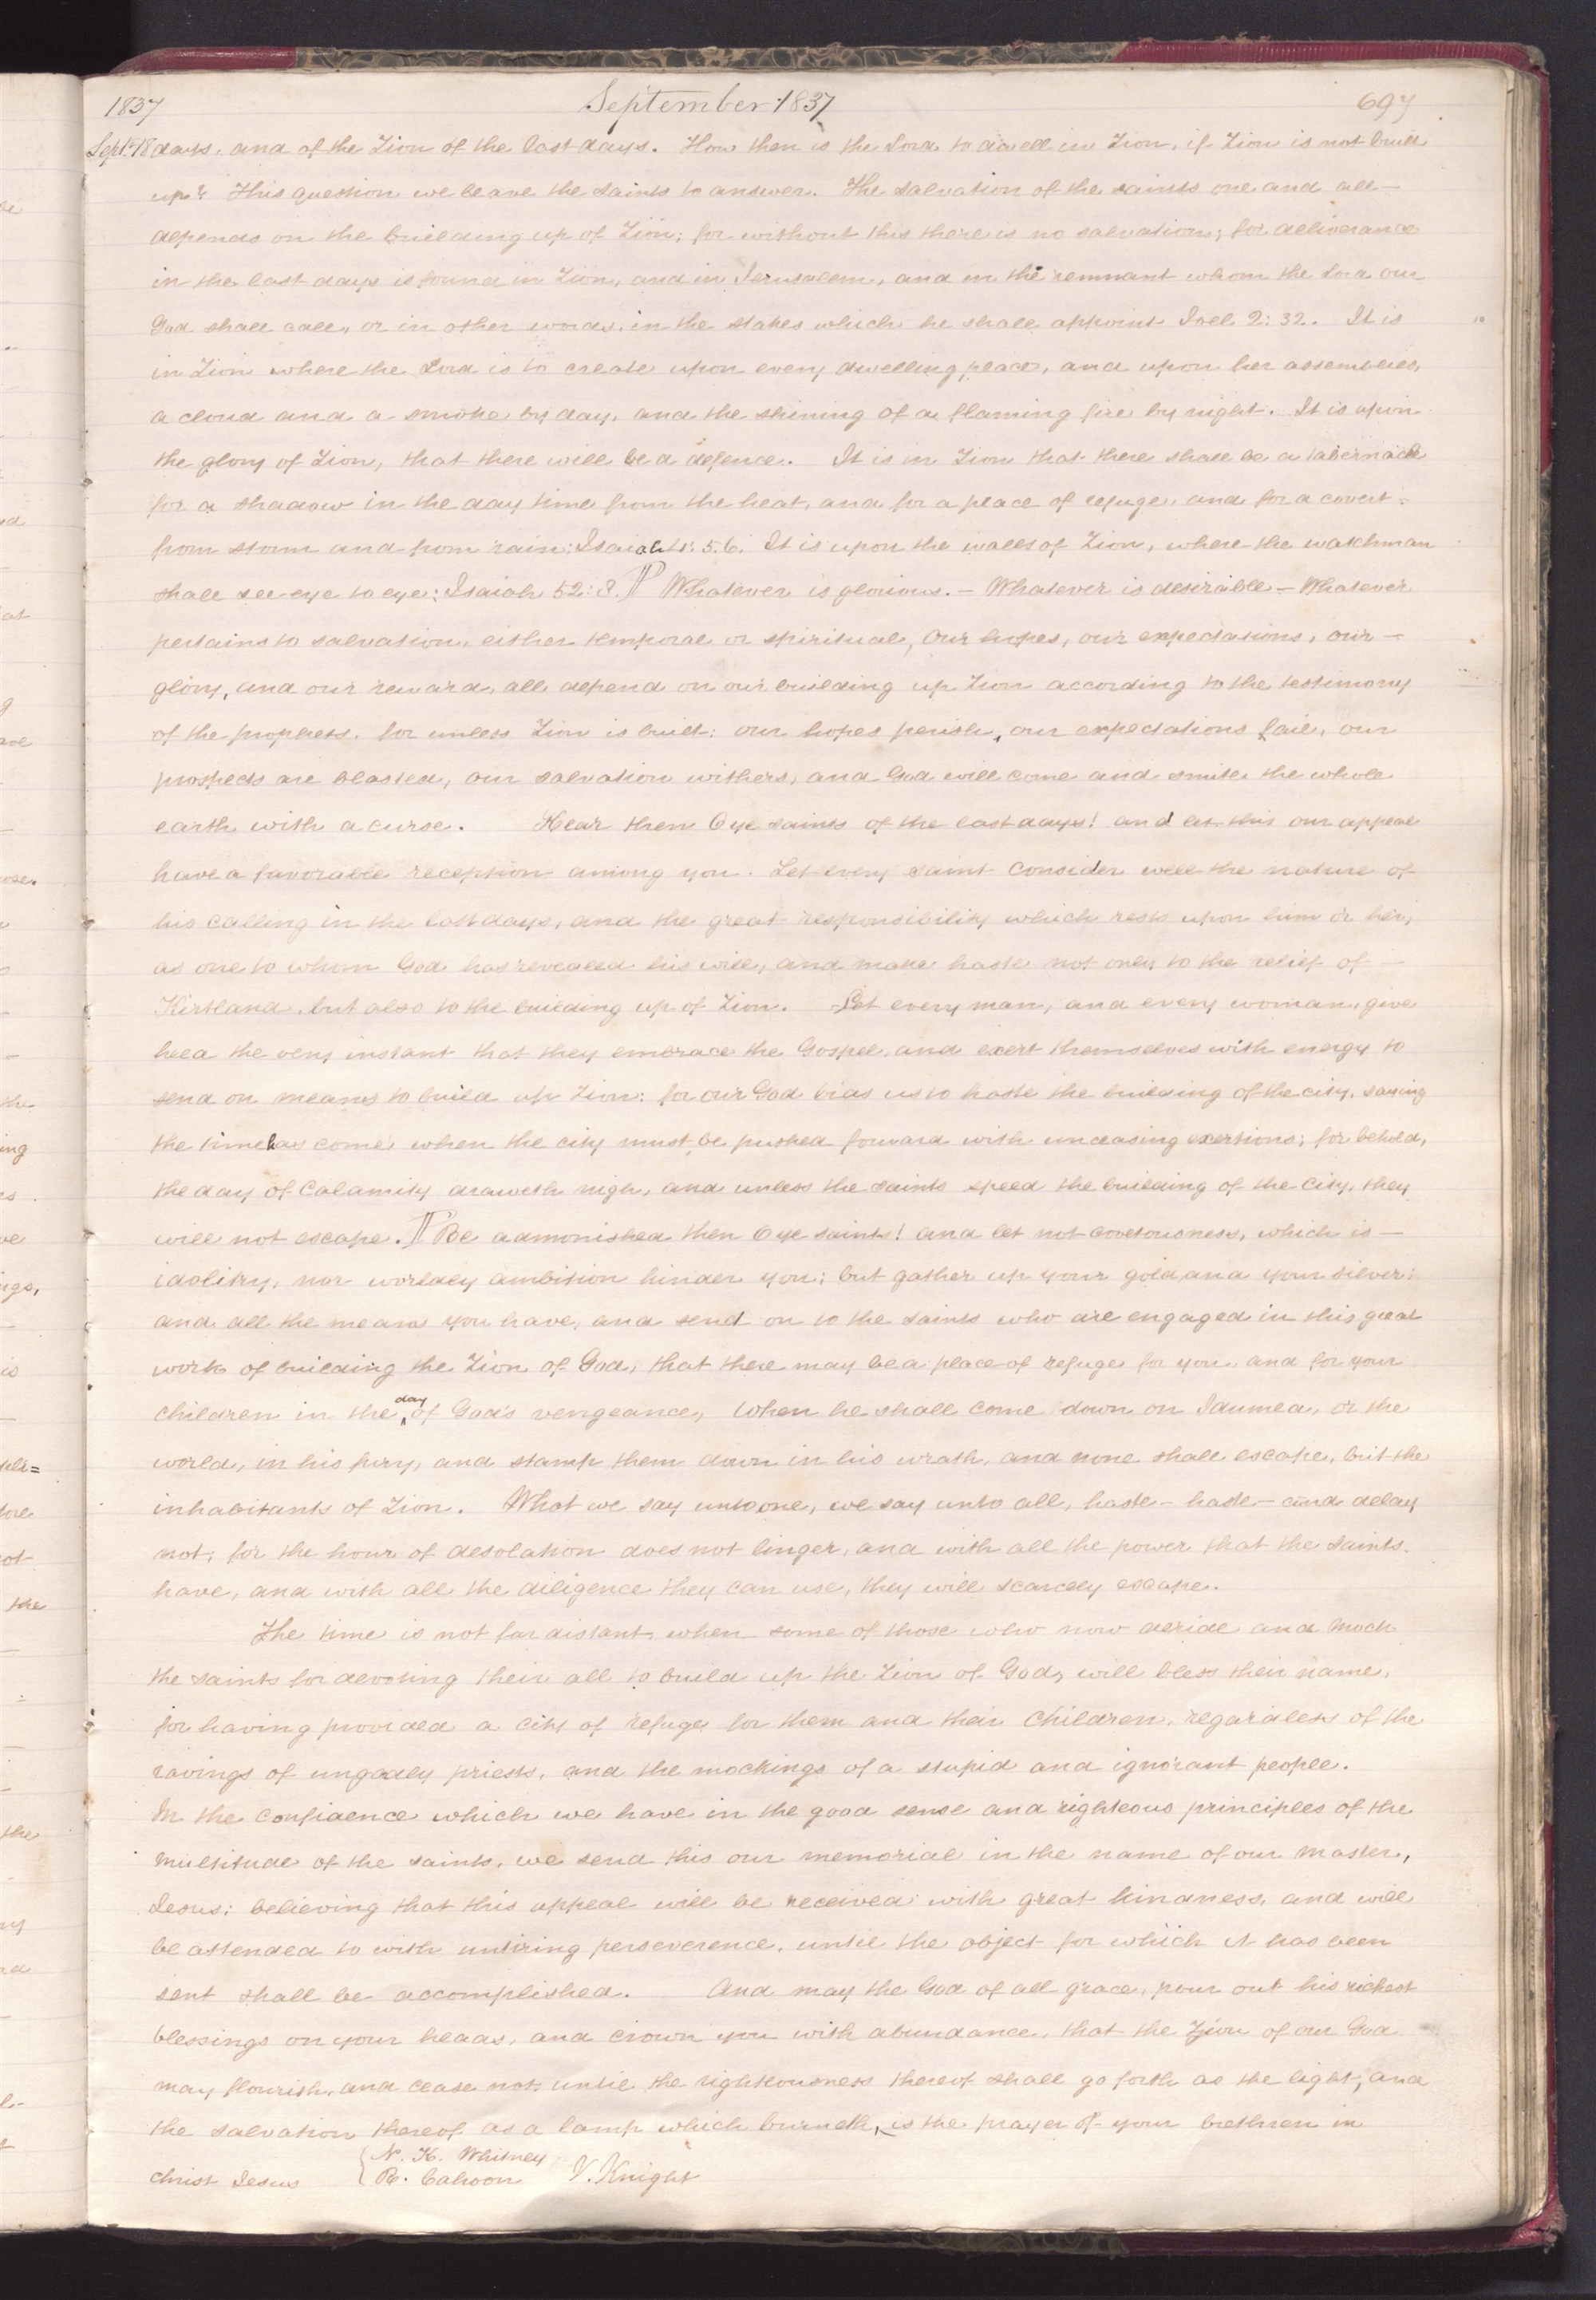 1837 September 1837 697
Sept. 18 days, and of the Zion of the last days. How then is the Lord to dwell in Zion, if Zion is not built
up? This question we leave the saints to answer. The salvation of the saints one and all—
depends on the building up of Zion; for without this there is no salvation; for deliverance
in the last days is found in Zion, and in Jerusalem, and in the remnant whom the Lord our
God shall call, or in other words, in the stakes which he shall appoint Joel 2: 32. It is
in Zion where the Lord is to create upon every dwelling place, and upon her assemblies,
a cloud and a smoke by day, and the shining of a flaming fire by night. It is upon
the glory of Zion, that there will be a defence. It is in Zion that there shall be a tabernacle
for a shadow in the day time from the heat, and for a place of refuge, and for a covert-
from storm and from rain: Isaiah 4: 5.6. It is upon the walls of Zion, where the watchman
shall see eye to eye: Isaiah 52: 8. ¶ Whatever is glorious.— Whatever is desirable— Whatever
pertains to salvation, either temporal or spiritual, our hopes, our expectations, our—
glory, and our reward, all depend on our building up Zion according to the testimony
of the prophets. for unless Zion is built: our hopes perish, our expectations fail, our
prospects are blasted, our salvation withers, and God will come and smite the whole
earth with a curse. Hear then O ye saints of the last days! and let this our appeal
have a favorable reception among you. Let every saint consider well the nature of
his calling in the last days, and the great responsibility which rests upon him or her,
as one to whom God has revealed his will, and make haste not only to the relief of—
Kirtland, but also to the building up of Zion. Let every man, and every woman, give
heed the very instant that they embrace the Gospel, and exert themselves with energy to
send on means to build up Zion: for our God bids us to haste the building of the city, saying
the time has come when the city must be pushed forward with unceasing exertions; for behold,
the day of calamity draweth nigh, and unless the saints speed the building of the city, they
will not escape. ¶ Be admonished then O ye saints! and let not covetousness, which is—
idolitry, nor worldly ambition hinder you; but gather up your gold, and your silver;
and all the means you have, and send on to the saints who are engaged in this great
work of building the Zion of God, that there may be a place of refuge for you and for your
children in the day of God's vengeance, when he shall come down on Idumea, or the
world, in his fury, and stamp them down in his wrath, and none shall escape, but the
inhabitants of Zion. What we say unto one, we say unto all, haste— haste— and delay
not; for the hour of desolation does not linger, and with all the power that the saints
have, and with all the diligence they can use, they will scarcely escape.
The time is not far distant, when some of those who now deride and mock
the saints for devoting their all to build up the Zion of God, will bless their name,
for having provided a city of refuge for them and their children, regardless of the
ravings of ungodly priests, and the mockings of a stupid and ignorant people.
In the confidence which we have in the good sense and righteous principles of the
multitude of the saints, we send this our memorial in the name of our master,
Jesus; believing that this appeal will be received with great kindness, and will
be attended to with untiring perseverence, until the object for which it has been
sent shall be accomplished. And may the God of all grace, pour out his richest
blessings on your heads, and crown you with abundance, that the Zion of our God
may flourish, and cease not until the righteousness thereof shall go forth as the light, and
the salvation thereof as a lamp which burneth, is the prayer of your brethren in
christ Jesus { N. K. Whitney
R. Cahoon V. Knight